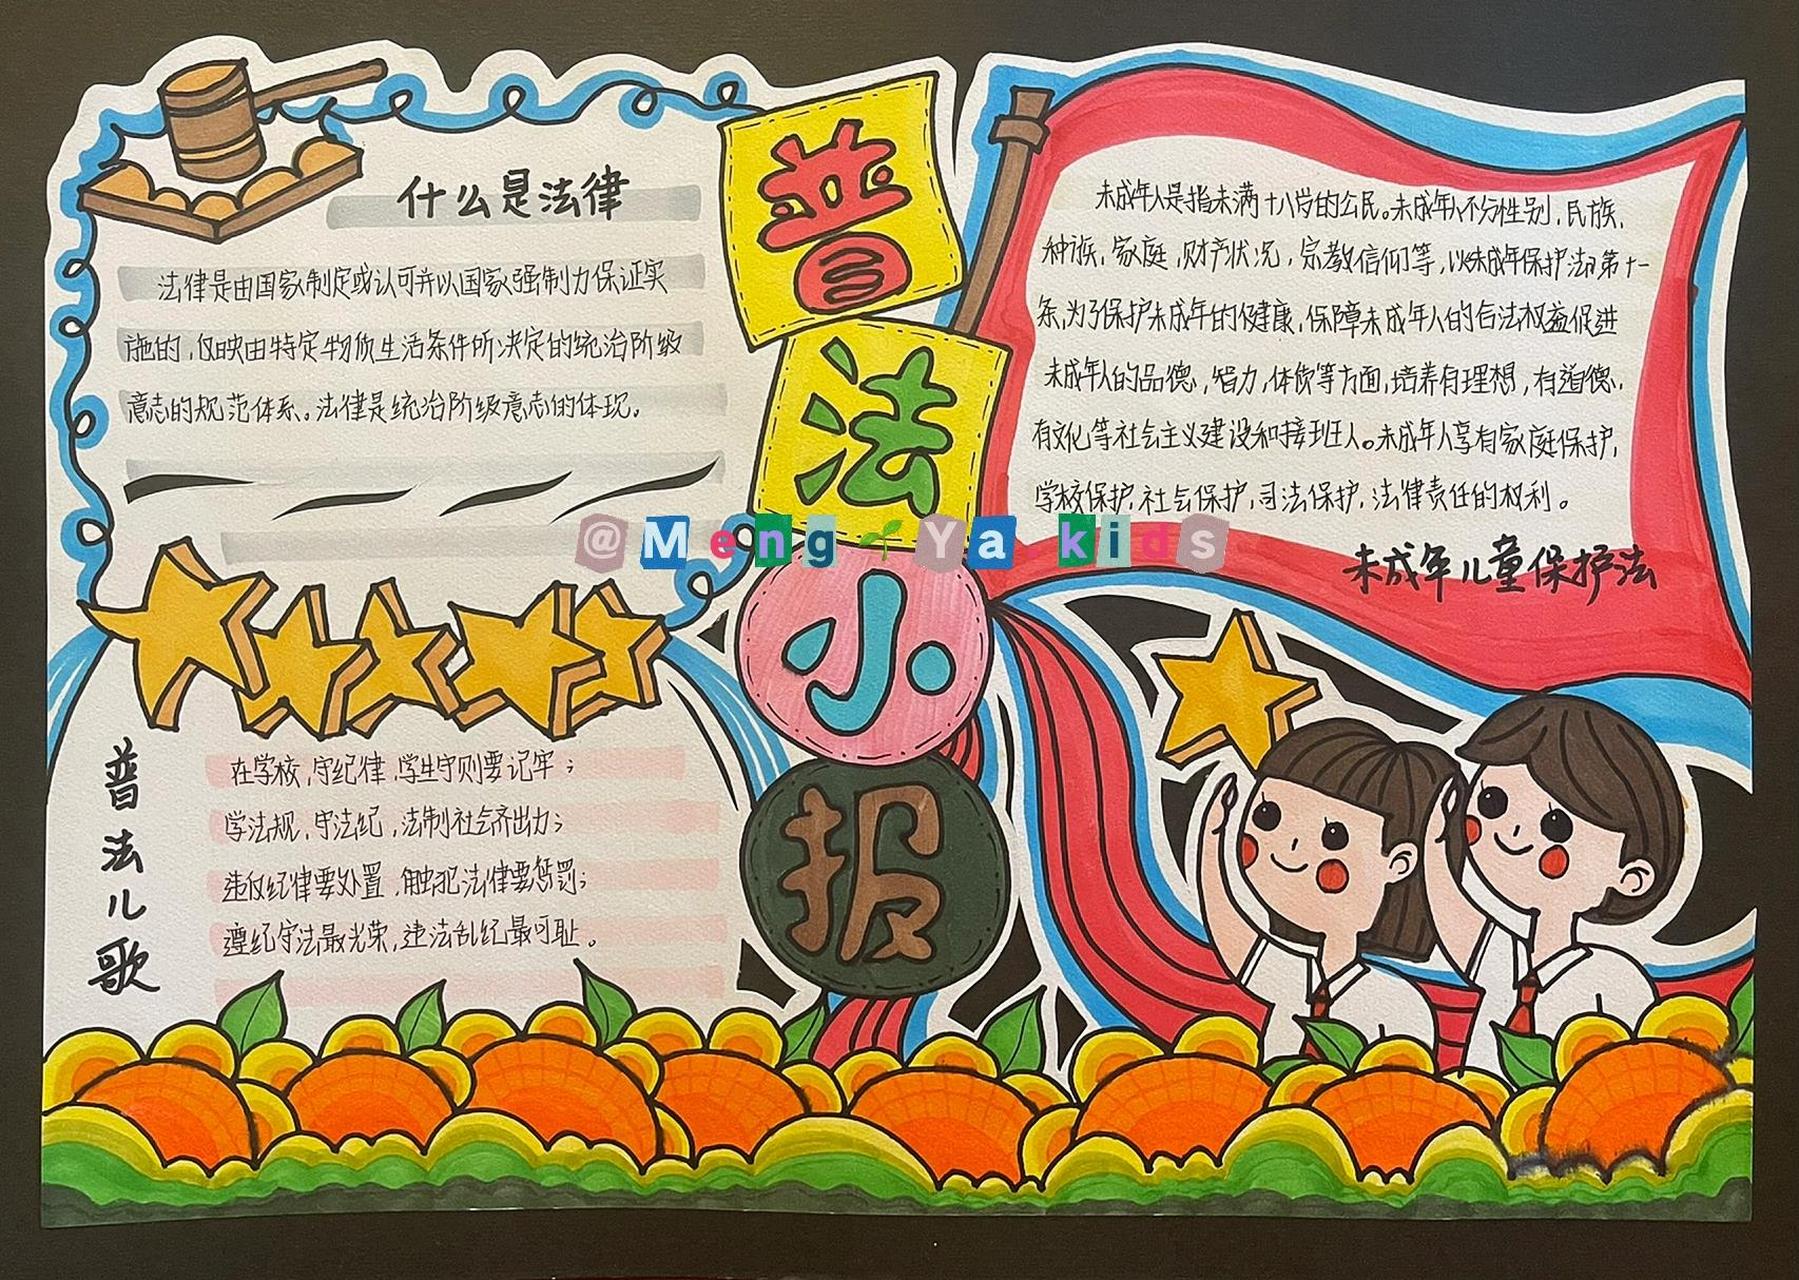 什么是法律
法律是由国家制定或认可并以国家强制力保证实
施的,仅映由特定物质生活条件所决定的统治阶级
意志的规范体系。法律是统治阶级意志的体现。
普
法
小
报
未成年人是指未满十八岁的公民。未成年人不分性别,民族,
种族,家庭,财产状况,宗教信仰等,以未成年保护法第十一
条,为了保护未成年的健康,保障未成年人的合法权益促进
未成年人的品德,智力,体质等方面,培养有理想,有道德,
有文化等社会主义建设和接班人。未成年人享有家庭保护,
学校保护,社会保护,司法保护,法律责任的权利。
未成年儿童保护法
@Meng Ya.kids
普法儿歌
在学校,守纪律,学生守则要记牢;
学法规,守法纪,法制社会齐出力;
违反纪律要处置,触犯法律要惩罚;
遵纪守法最光荣,违法乱纪最可耻。